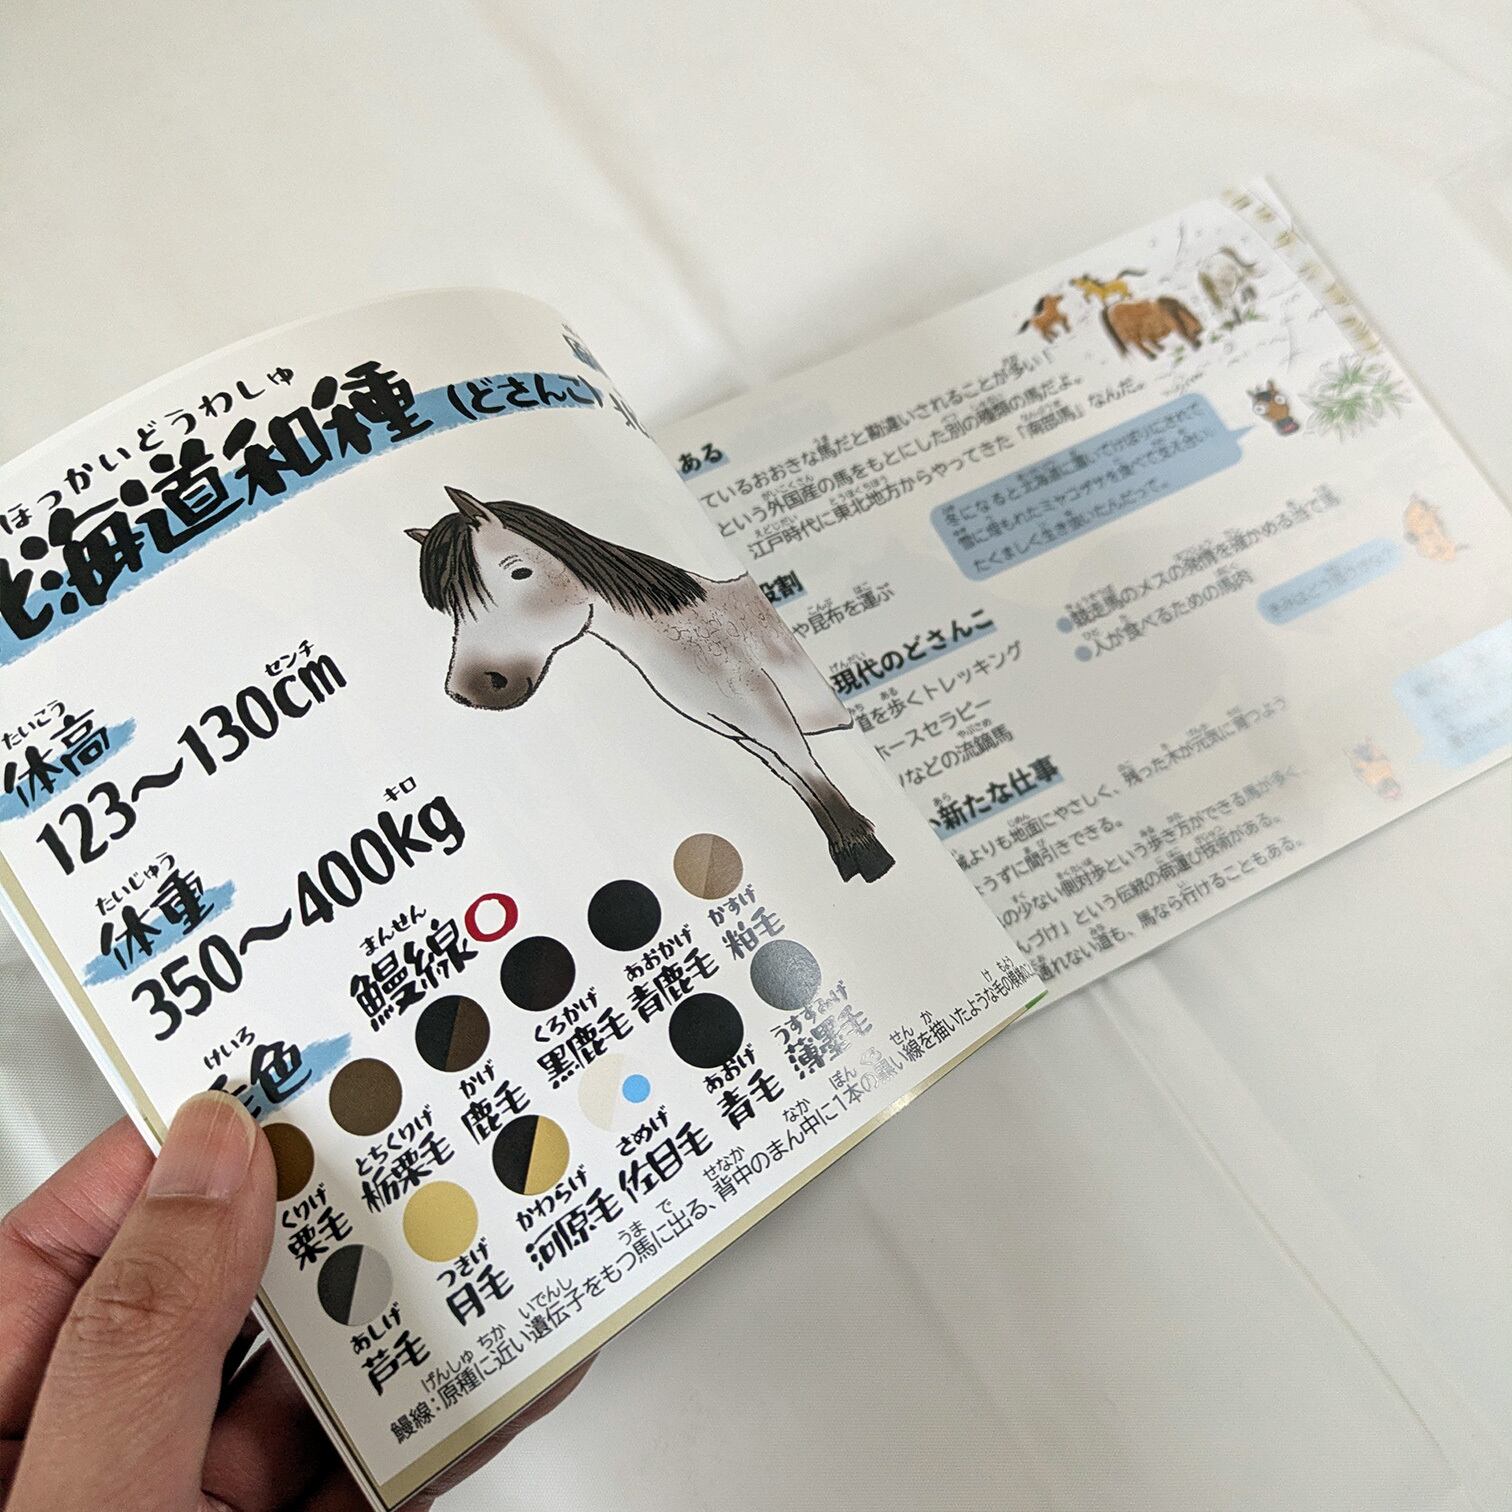 ほっかいどうわしゅ
北海道和種(どさんこ)
たいこう
体高
センチ
123〜130cm
たいじゅう
体重
キロ
350〜400kg
けいろ
毛色
まんせん
鰻線○
くりげ
栗毛
とちくりげ
栃栗毛
かげ
鹿毛
くろかげ
黒鹿毛
あおかげ
青鹿毛
かすげ
粕毛
あしげ
芦毛
つきげ
月毛
かわらげ
河原毛
さめげ
佐目毛
あおげ
青毛
うすずみげ
薄墨毛
げんしゅ ちか いでんし うま で せなか なか ぽん くろ せん か け もよう
鰻線:原種に近い遺伝子をもつ馬に出る、背中のまん中に1本の黒い線を描いたような毛の模様のこ
ある
ているおおきな馬だと勘違いされることが多い!
という外国産の馬をもとにした別の種類の馬だよ。
江戸時代に東北地方からやってきた「南部馬」なんだ。
冬になると北海道に置いてけぼりにされて
雪に埋もれたミヤコザサを食べて支え合い
たくましく生き抜いたんだって。
役割
や昆布を運ぶ
競走馬のメスの発情を確かめる当て馬
人が食べるための馬肉
現代のどさんこ
道を歩くトレッキング
ホースセラピー
などの流鏑馬
新たな仕事
よりも地面にやさしく、残った木が元気に育つよう
ように間引きできる。
の少ない側対歩という歩き方ができる馬が多く、
んづけ」という伝統の荷運び技術がある。
通れない道も、馬なら行けることもある。